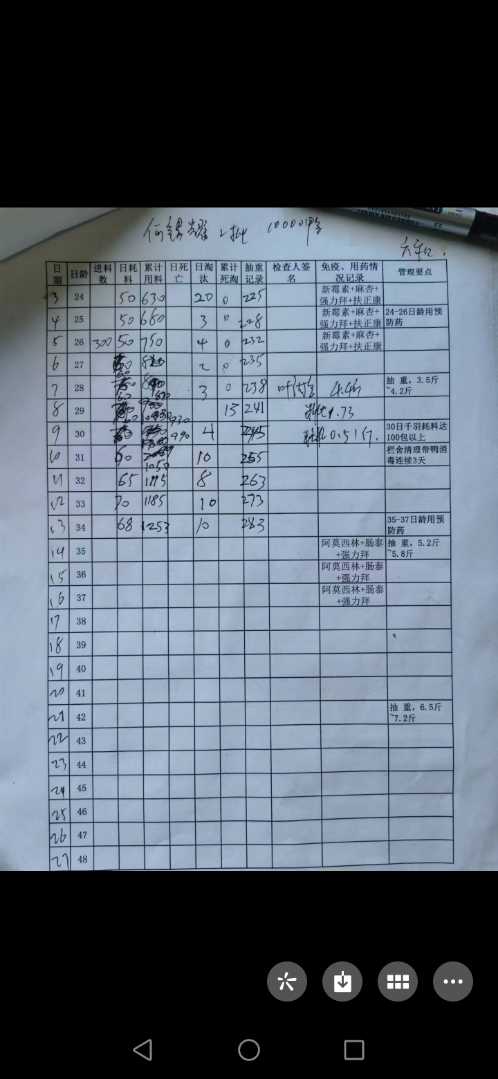 10000
日期 日龄 进料数 日耗料 累计用料 日死亡 日淘汰 累计死淘 抽重记录 检查人签名 免疫、用药情况记录 管理要点
3 24 50 630 20 0 225 新霉素+麻杏+强力拜+扶正康
4 25 50 680 3 0 228 新霉素+麻杏+强力拜+扶正康 24-26日龄用预防药
5 26 300 50 750 4 0 232 新霉素+麻杏+强力拜+扶正康
6 27 2 0 235
7 28 3 0 238 抽 重，3.5斤~4.2斤
8 29 13 241
9 30 990 4 245 30日千羽耗料达100包以上
10 31 60 1050 10 255 栏舍清理带鸭消毒连续3天
11 32 65 1115 8 263
12 33 70 1185 10 273
13 34 68 1253 10 283 35-37日龄用预防药
14 35 阿莫西林+肠泰+强力拜 抽 重，5.2斤~5.8斤
15 36 阿莫西林+肠泰+强力拜
16 37 阿莫西林+肠泰+强力拜
17 38
18 39
19 40
20 41
21 42 抽 重，6.5斤~7.2斤
22 43
23 44
24 45
25 46
26 47
27 48